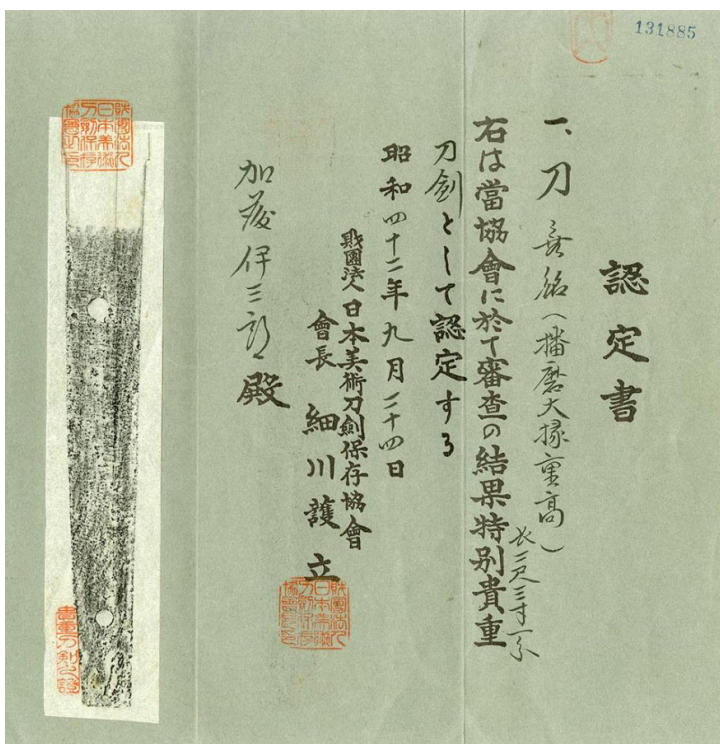 131885
認定書
一、刀 無銘(播磨大掾重高)
長二尺三寸一分
右は當協會に於て審査の結果特別貴重
刀劍として認定する
昭和四十二年九月二十四日
財團法人 日本美術刀劍保存協會
會長 細川護立
加藤伊三郎殿
財團法人日本美術刀劍保存協會之印
貴重刀剣之證